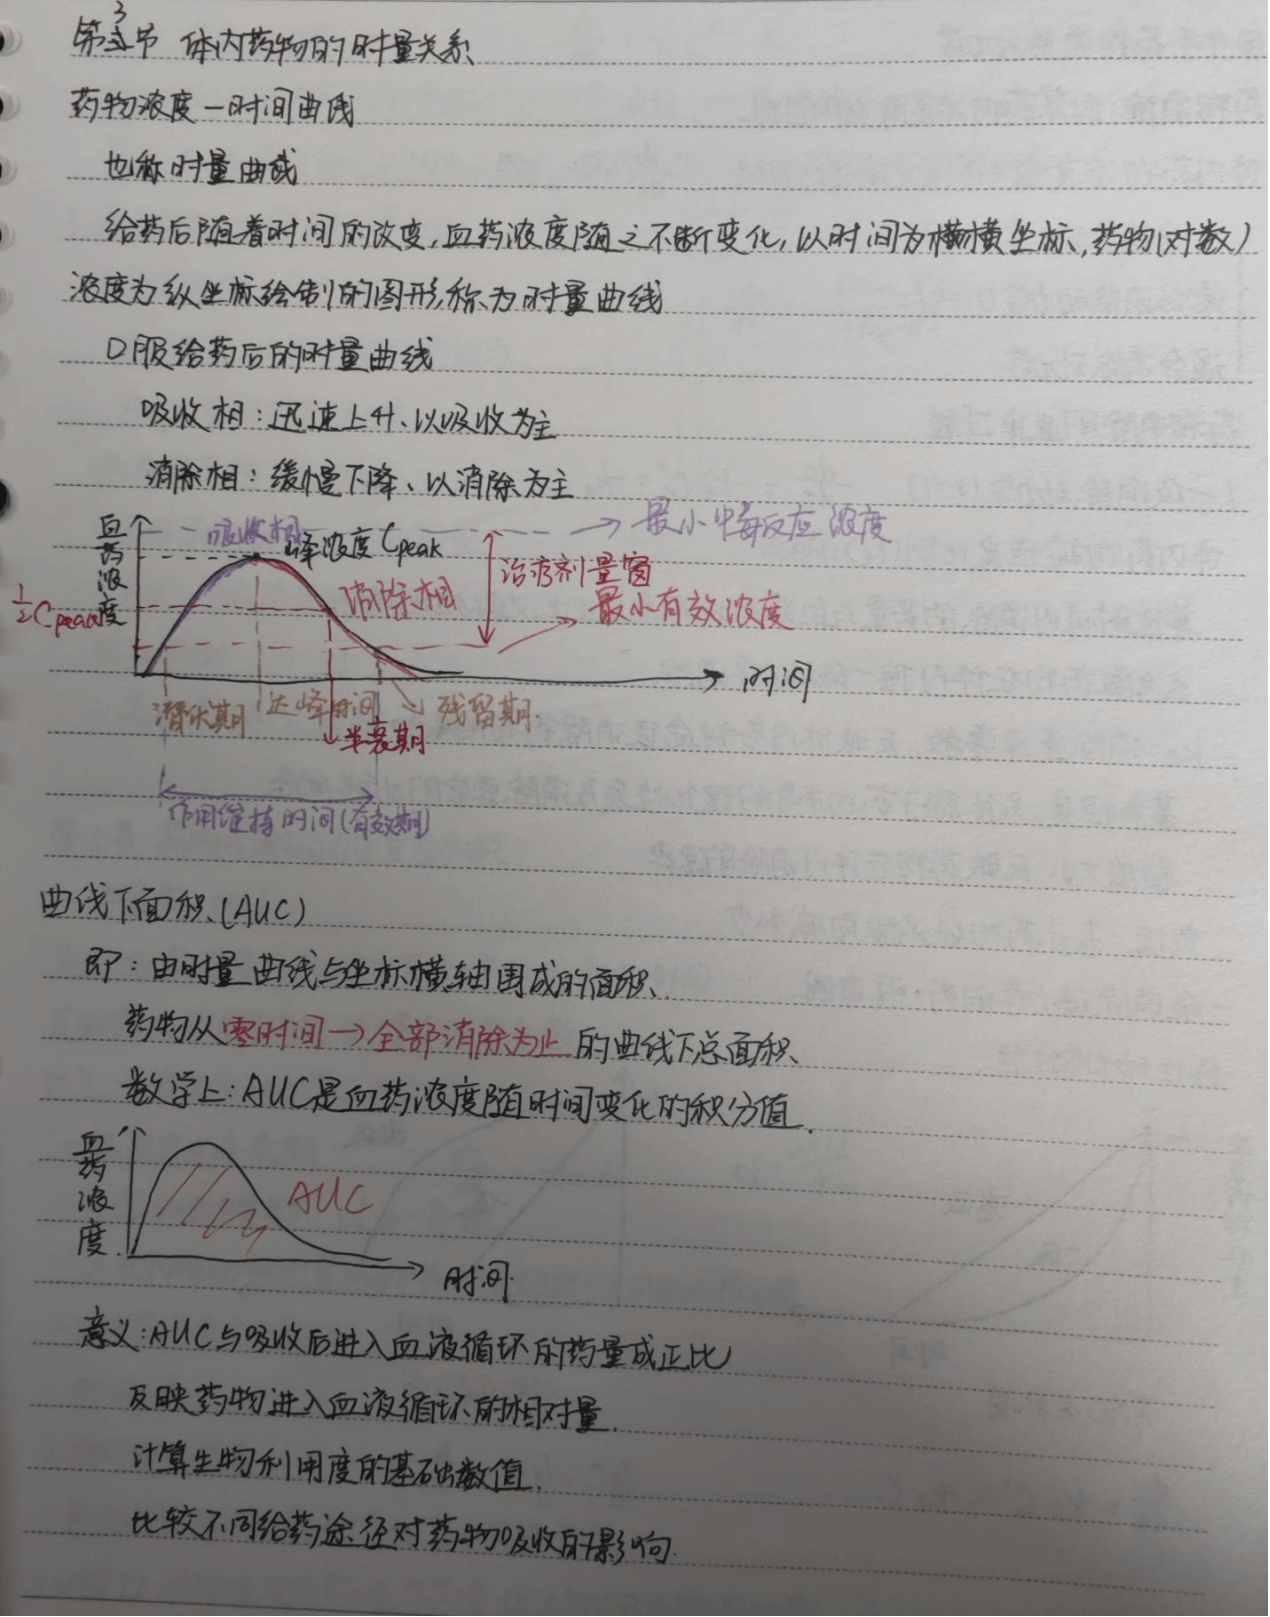 第3节 体内药物的时量关系
药物浓度—时间曲线
也称时量曲线
给药后随着时间的改变,血药浓度随之不断变化,以时间为横坐标,药物(对数)
浓度为纵坐标绘制的图形称为时量曲线
口服给药后的时量曲线
吸收相:迅速上升、以吸收为主
消除相:缓慢下降、以消除为主
血药浓度
吸收相
峰浓度Cpeak
最小中毒反应浓度
治疗剂量窗
½Cpeak
消除相
最小有效浓度
时间
潜伏期
达峰时间
残留期
半衰期
作用维持时间(有效期)
曲线下面积(AUC)
即:由时量曲线与坐标横轴围成的面积.
药物从零时间→全部消除为止的曲线下总面积.
数学上:AUC是血药浓度随时间变化的积分值.
血药浓度
AUC
时间
意义:AUC与吸收后进入血液循环的药量成正比
反映药物进入血液循环的相对量.
计算生物利用度的基础数值.
比较不同给药途径对药物吸收的影响.